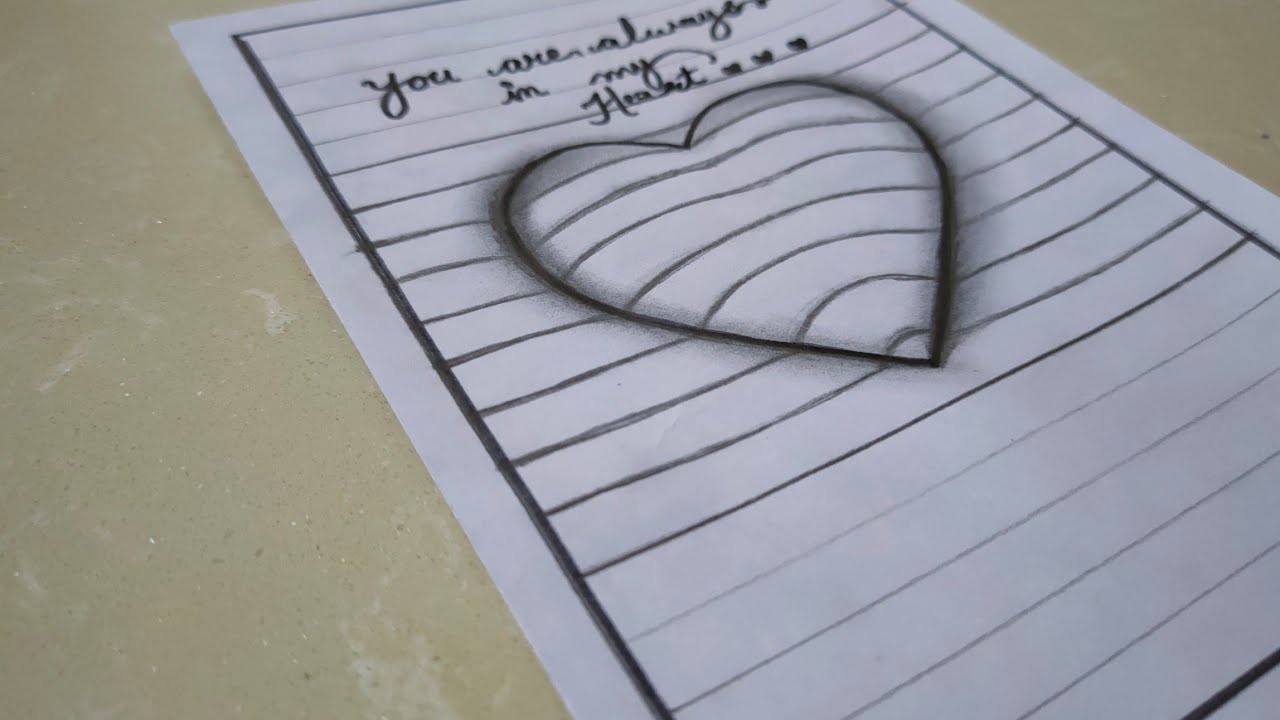 You are always
in my
Heart